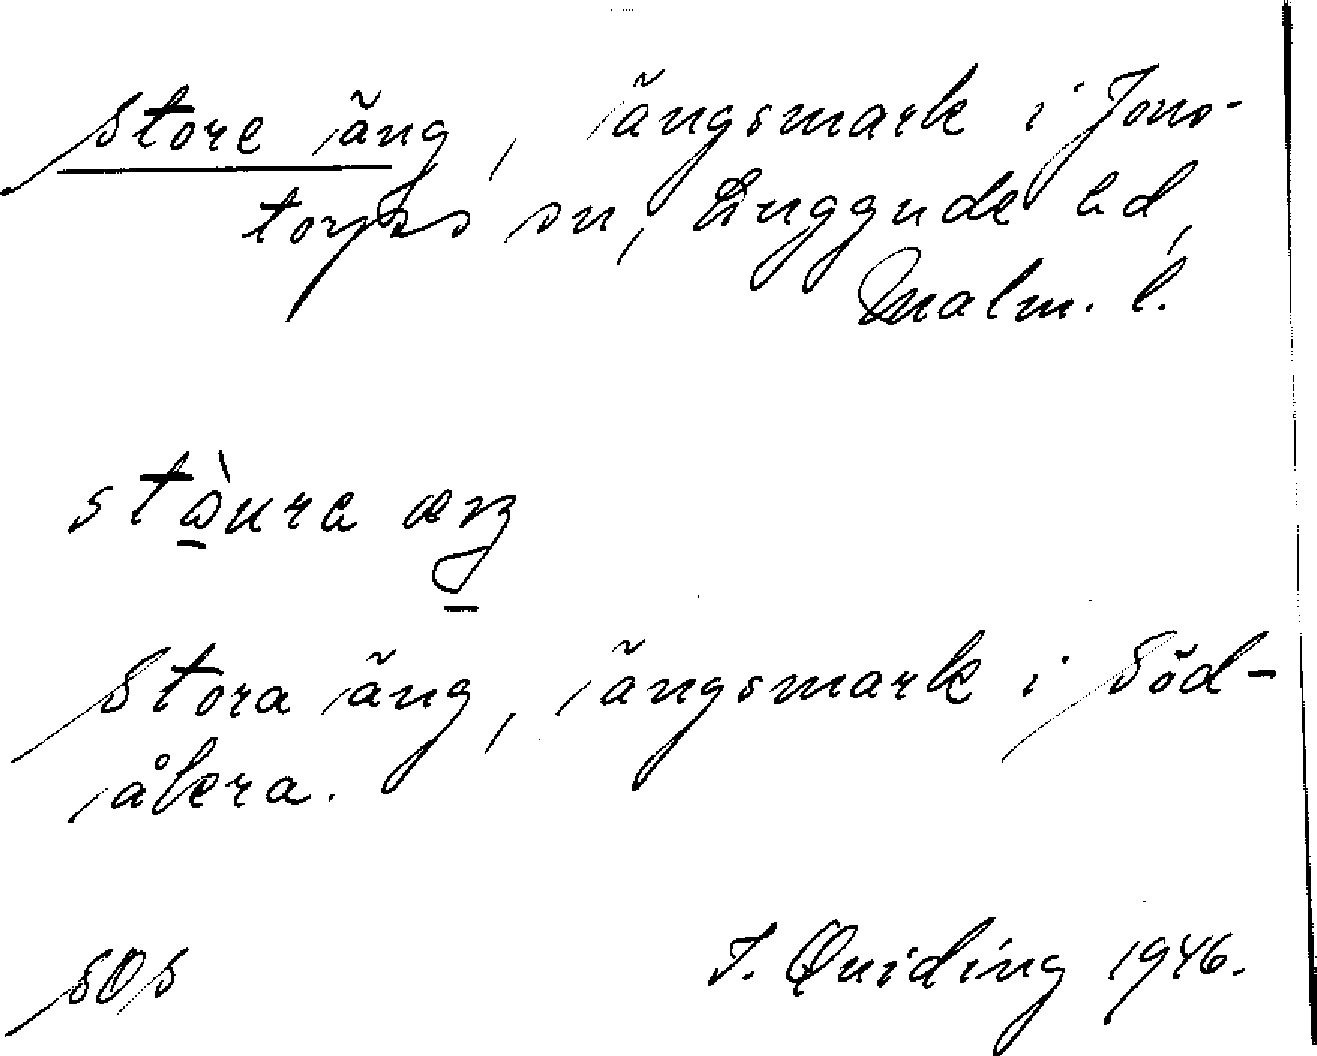 Store äng, ängsmark i Jons-
torps sn, Luggude hd,
Malm. l.
stòura æŋ
Stora äng, ängsmark i Söd-
åkra.
SOS I. Quiding 1946.